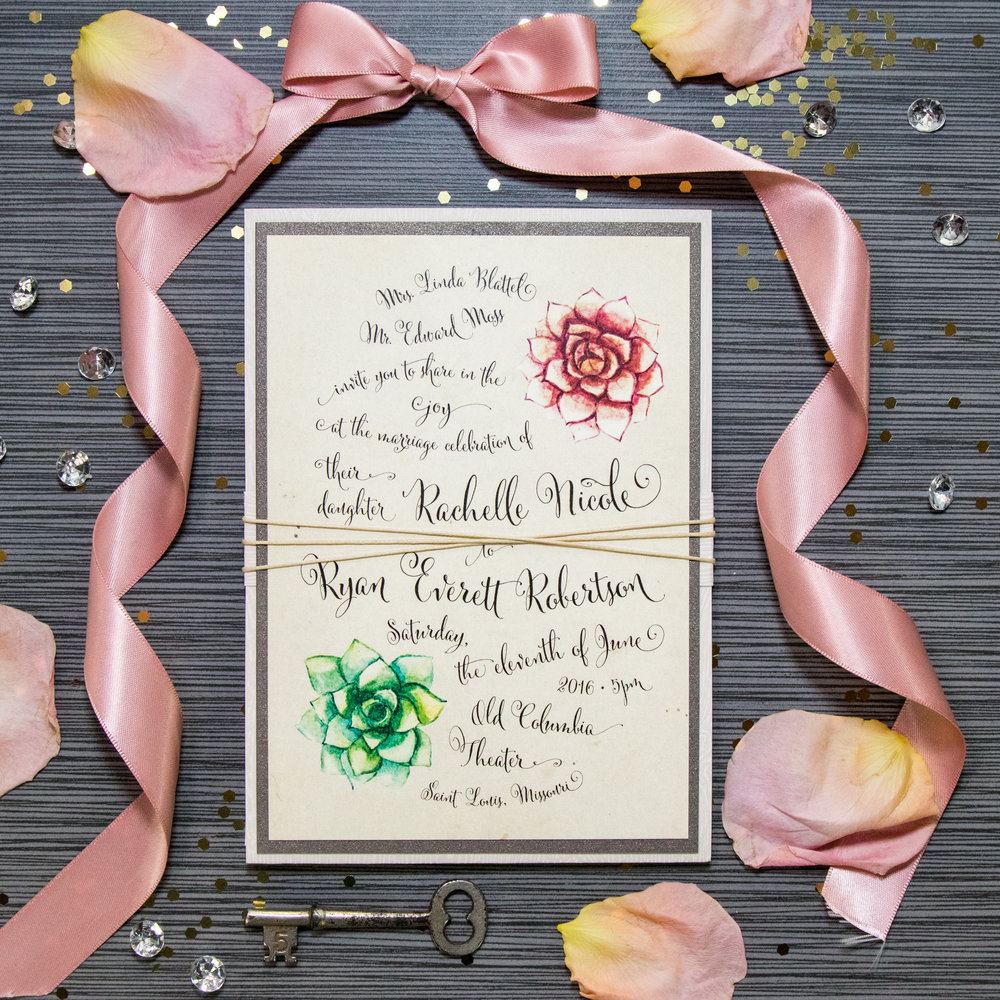 Mrs. Linda Blattel
Mr. Edward Moss
invite you to share in the
joy
at the marriage celebration of
their
daughter Rachelle Nicole
to
Ryan Everett Robertson
Saturday,
the eleventh of June
2016 · 5pm
Old Columbia
Theater
Saint Louis, Missouri
5